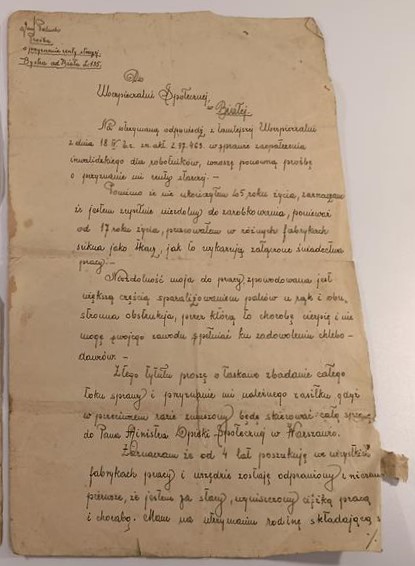 Prośba
o przyznanie renty starczej.
Bystra ad Biała L. 135.
Do
Ubezpieczalni Społecznej
w Białej.
Na otrzymaną odpowiedź z tamtejszej Ubezpieczalni
z dnia 18 b.r. zn. akt. 2.37.463. w sprawie zaopatrzenia
inwalidzkiego dla robotników, wnoszę ponowną prośbę
o przyznanie mi renty starczej. -
Pomimo że nie ukończyłem 65 roku życia, zaznaczam
iż jestem zupełnie niezdolny do zarobkowania, ponieważ
od 17 roku życia, pracowałem w różnych fabrykach
sukna jako tkacz, jak to wykazują załączone świadectwa
pracy. -
Niezdolność moja do pracy spowodowana jest
większą częścią sparaliżowaniem palców u rąk i obu,
stronna obstrukcja, przez którą to chorobę cierpię i nie
mogę swojego zawodu spełniać ku zadowoleniu chlebo-
dawców. -
Z tego tytułu proszę o łaskawe zbadanie całego
toku sprawy i przyznanie mi należnego zasiłku gdyż
w przeciwnym razie zmuszony będę skierować całą
do Pana Ministra Opieki Społecznej w Warszawie.
Zaznaczam że od 4 lat poszukuję we wszystkich
fabrykach pracy i wszędzie zostaję odprawiony z niczem
pierwsze, że jestem za stary, wyniszczony ciężką pracą
i chorobą. Mam na utrzymaniu rodzinę składającą